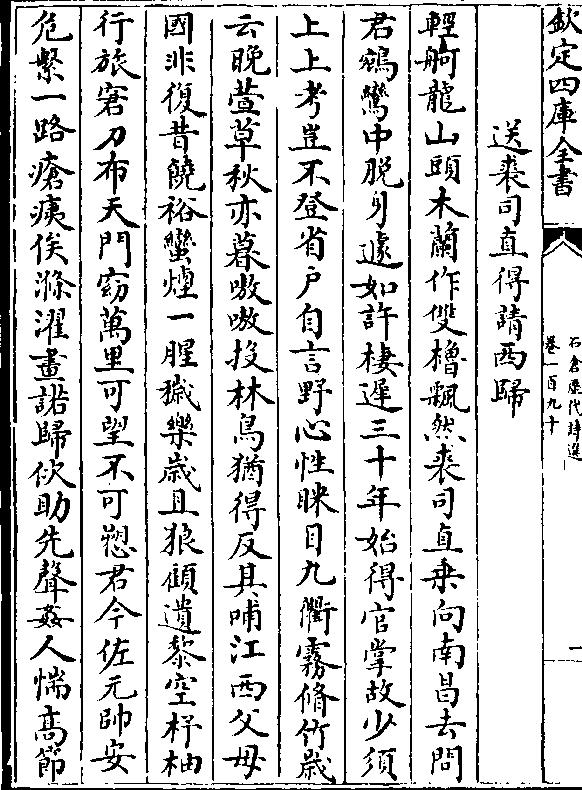 欽定四庫全書
石倉歷代詩選
卷一百九十
一
送裘司直得請西歸
輕舸龍山頭木蘭作雙櫓飄然裘司直乗向南昌去問
君鵷鸞中脱身遽如許棲遲三十年始得官掌故少須
上上考豈不登省户自言野心性眯目九衢霧脩竹歲
云晩萱草秋亦暮嗷嗷投林鳥猶得反其哺江西父母
國非復昔饒裕蠻煙一腥穢樂歲且狼顧遺黎空杼柚
行旅窘刀布天門窈萬里可望不可愬君今佐元帥安
危繫一路瘡痍俟滌濯畫諾歸佽助先聲姦人惴高節